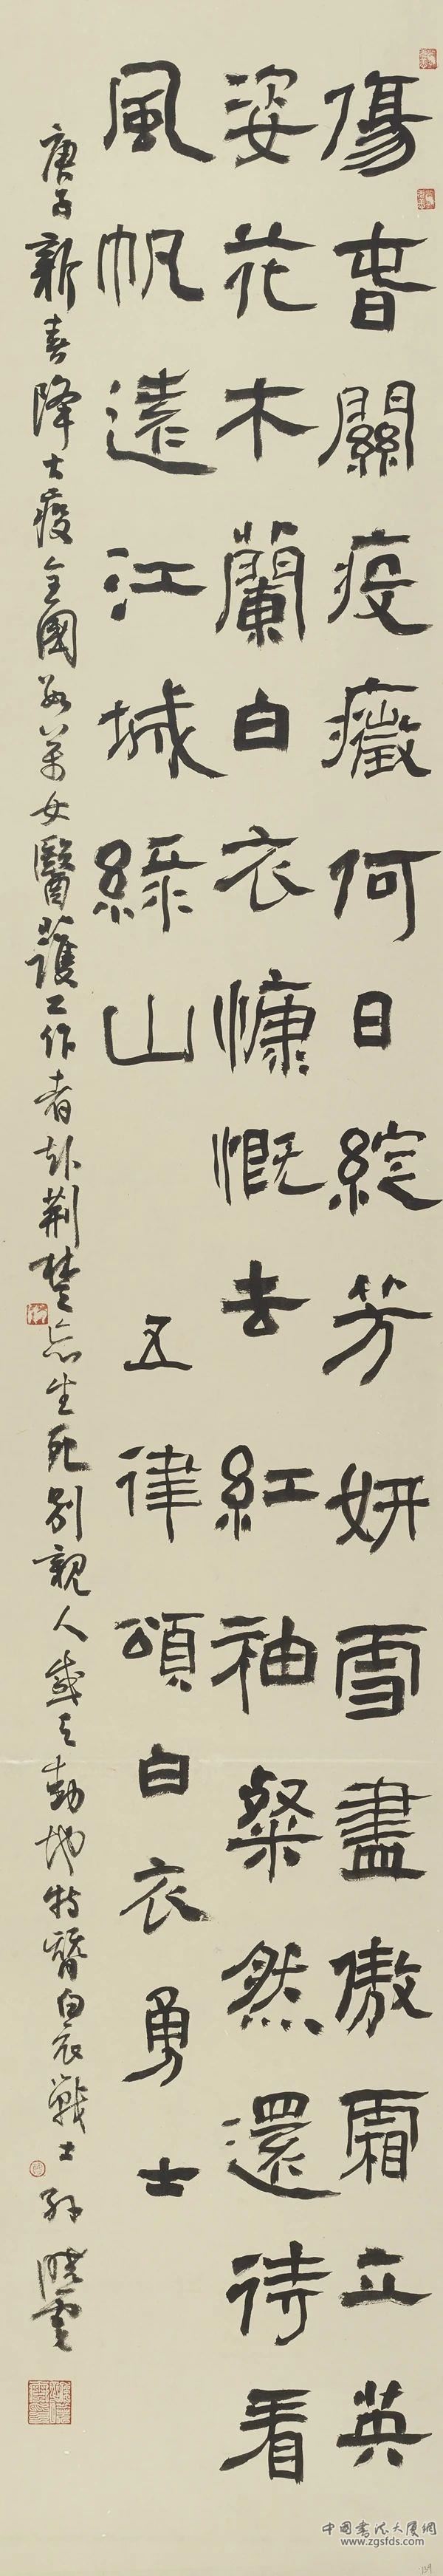 傷春關疫癥何日綻芳妍雪盡傲霜立英
姿花木蘭白衣慷慨去紅袖粲然還待看
風帆遠江城綠山 五律頌白衣勇士
庚子新春降大疫全國數萬女醫護工作者赴荊楚忘生死別親人感天動地特贊白衣戰士 孫曉雲
中國書法大廈網
www.zgsfds.com